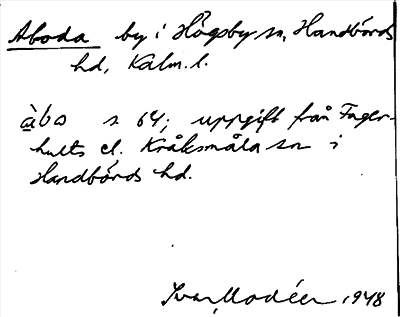 Aboda by i Högsby sn, Handbörds
hd, Kalm. l.
àbo s 64; uppgift från Fager-
hults el. Kråksmåla sn i
Handbörds hd.
Ivar Modéer 1948